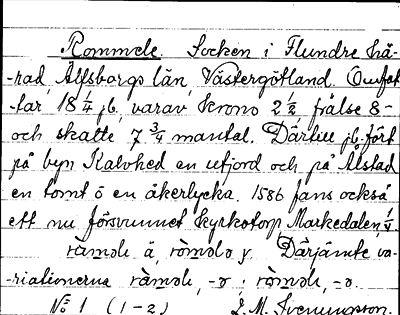 Rommele. Socken i Flundre hä-
-rad, Älfsborgs län, Västergötland. Omfat-
-tar 18 1/4 jb, varav krono 2 1/2, frälse 8-
och skatte 7 3/4 mantal. Därtill jb.fört
på byn Kalvhed en utjord och på Ålstad
en tomt o en åkerlycka. 1586 fans också
ett nu försvunnet kyrkotorp Markedalen 1/4.
ràmǝlı ä, ròmǝlǝ y. Därjämte va-
-riationerna
No 1 (1-2) L. M. Svenungsson.